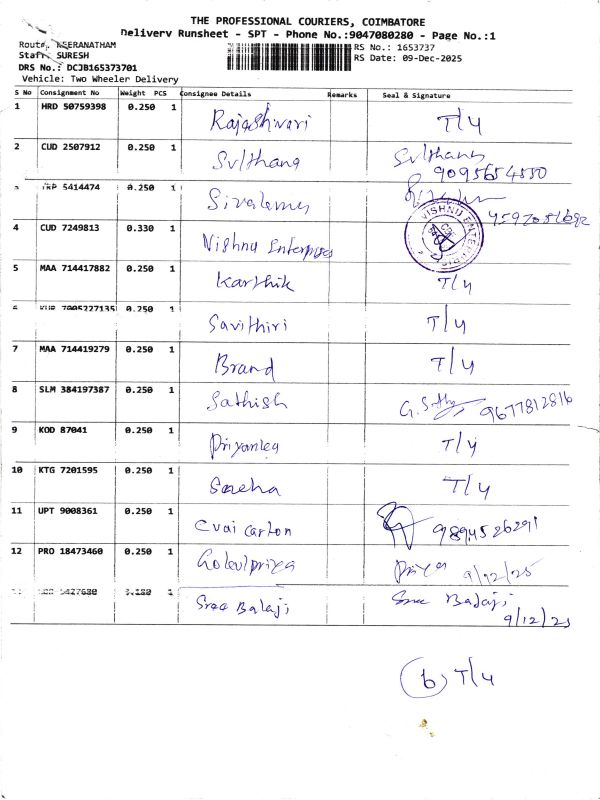 THE PROFESSIONAL COURIERS, COIMBATORE
Delivery Runsheet - SPT - Phone No.:9047080280 - Page No.:1
Route: KEERANATHAM
RS No.: 1653737
Staff: SURESH
RS Date: 09-Dec-2025
DRS No.: DCJB165373701
Vehicle: Two Wheeler Delivery
S No Consignment No Weight PCS Consignee Details Remarks Seal & Signature
1 HRD 50759398 0.250 1 Rajashwari T/4
2 CUD 2507912 0.250 1 Sulthana Sulthana
9095654550
5414474 0.250 1
VISHNU ENTERPRISES
4 CUD 7249813 0.330 1 Vishnu Enterprises
5 MAA 714417882 0.250 1 Karthik T/4
7005227135 0.250 1 Savithiri T/4
7 MAA 714419279 0.250 1 Brand T/4
8 SLM 384197387 0.250 1 Sathish 9677812816
9 KOD 87041 0.250 1 Priyanka T/4
10 KTG 7201595 0.250 1 Sneha T/4
11 UPT 9008361 0.250 1 evai carton 9894526291
12 PRO 18473460 0.250 1 Gokulpriya Priya 9/12/25
5427680 0.180 1 Sree Balaji Sree Balaji
9/12/25
(6) T/4